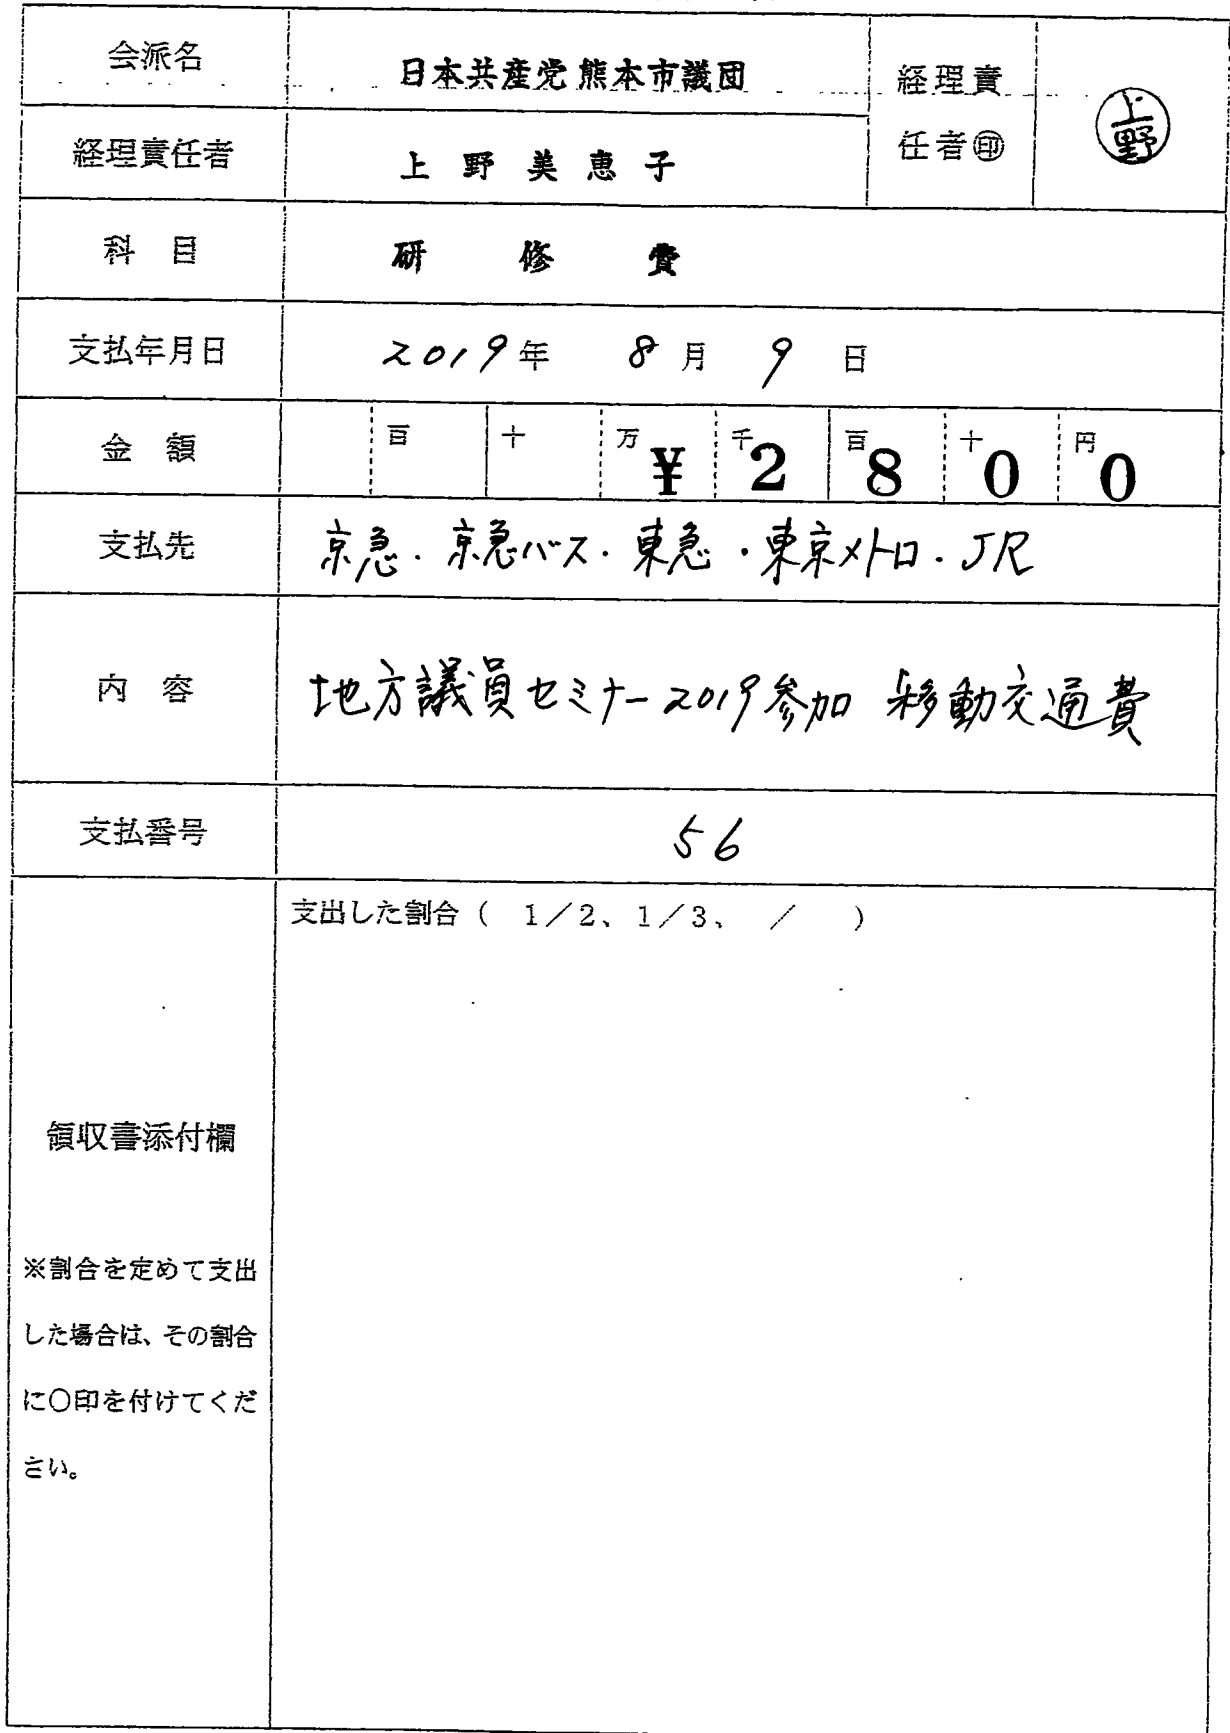 会派名
日本共産党熊本市議団
経理責
任者㊞
上野
経理責任者
上野美恵子
科目
研修費
支払年月日
2019年 8月 9日
金額
百 十 万 千 百 十 円
¥2800
支払先
京急・京急バス・東急・東京メトロ・JR
内容
地方議員セミナー2019参加 移動交通費
支払番号
56
支出した割合( 1/2、1/3、 / )
領収書添付欄
※割合を定めて支出
した場合は、その割合
に○印を付けてくだ
さい。